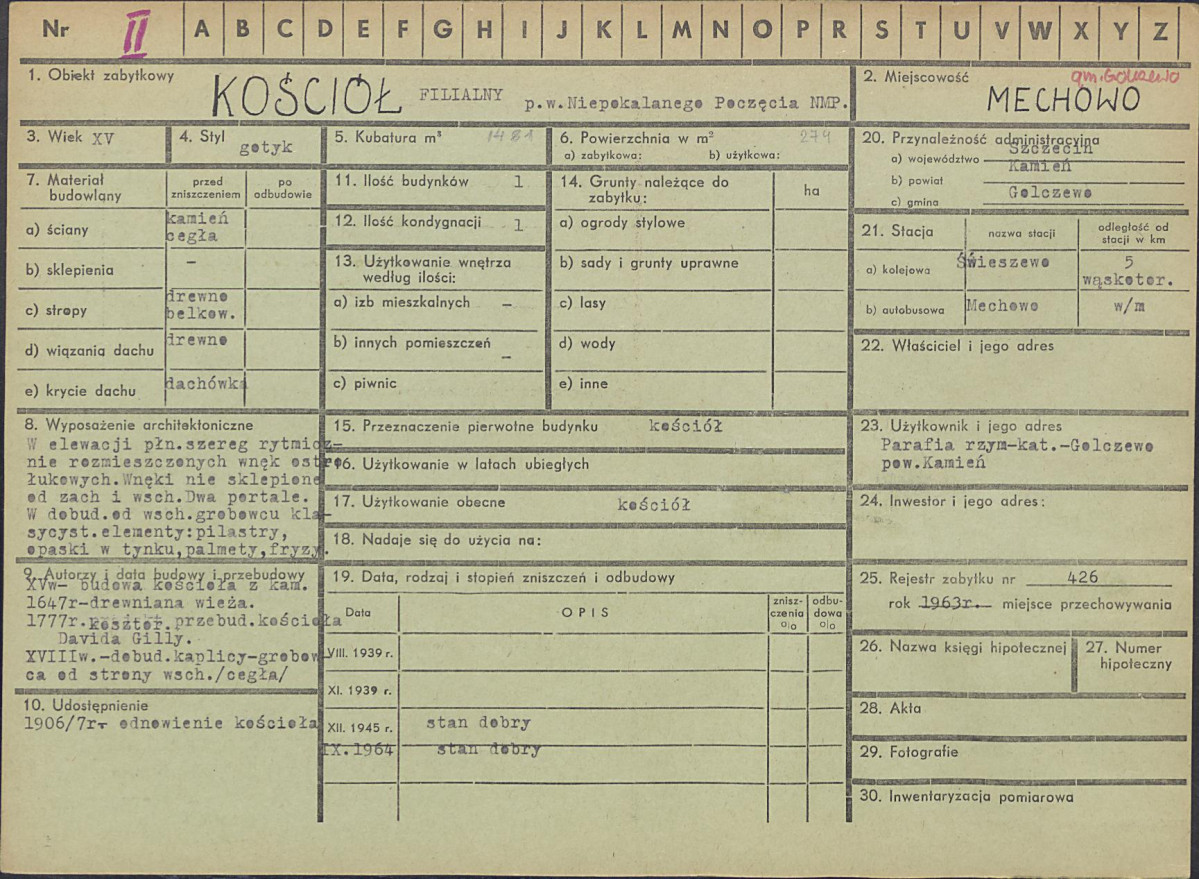 Nr II A B C D E F G H I J K L M N O P R S T U V W X Y Z
1. Obiekt zabytkowy
KOŚCIÓŁ FILIALNY p.w.Niepokalanego Poczęcia NMP.
2. Miejscowość gm. Golczewo
MECHOWO
3. Wiek XV
4. Styl gotyk
5. Kubatura m³ 1481
6. Powierzchnia w m² 279
a) zabytkowa: b) użytkowa:
7. Materiał budowlany
przed zniszczeniem
po odbudowie
a) ściany kamień cegła
b) sklepienia –
c) stropy drewno belkow.
d) wiązania dachu drewno
e) krycie dachu dachówka
8. Wyposażenie architektoniczne
W elewacji płn.szereg rytmicz-
nie rozmieszczonych wnęk ostro
łukowych.Wnęki nie sklepione
od zach i wsch.Dwa portale.
W dobud.od wsch.grobowcu kla-
sycyst.elementy:pilastry,
opaski w tynku,palmety,fryzy.
9. Autorzy i data budowy i przebudowy
XVw- budowa kościoła z kam.
1647r-drewniana wieża.
1777r. kosztor. przebud.kościoła
Davida Gilly.
XVIIIw.-dobud.kaplicy-grobow
ca od strony wsch./cegła/
10. Udostępnienie
1906/7r- odnowienie kościoła
11. Ilość budynków 1
12. Ilość kondygnacji 1
13. Użytkowanie wnętrza według ilości:
a) izb mieszkalnych –
b) innych pomieszczeń –
c) piwnic
14. Grunty należące do zabytku: ha
a) ogrody stylowe
b) sady i grunty uprawne
c) lasy
d) wody
e) inne
15. Przeznaczenie pierwotne budynku kościół
16. Użytkowanie w latach ubiegłych
17. Użytkowanie obecne kościół
18. Nadaje się do użycia na:
19. Data, rodzaj i stopień zniszczeń i odbudowy
Data OPIS zniszczenia o|o odbudowa o|o
VIII. 1939 r.
XI. 1939 r.
XII. 1945 r. stan dobry
IX.1964 stan dobry
20. Przynależność administracyjna
a) województwo Szczecin
b) powiat Kamień
c) gmina Golczewo
21. Stacja nazwa stacji odległość od stacji w km
a) kolejowa Świeszewo 5 wąskotor.
b) autobusowa Mechowo w/m
22. Właściciel i jego adres
23. Użytkownik i jego adres
Parafia rzym-kat.-Golczewo
pow.Kamień
24. Inwestor i jego adres:
25. Rejestr zabytku nr 426
rok 1963r. miejsce przechowywania
26. Nazwa księgi hipotecznej
27. Numer hipoteczny
28. Akta
29. Fotografie
30. Inwentaryzacja pomiarowa